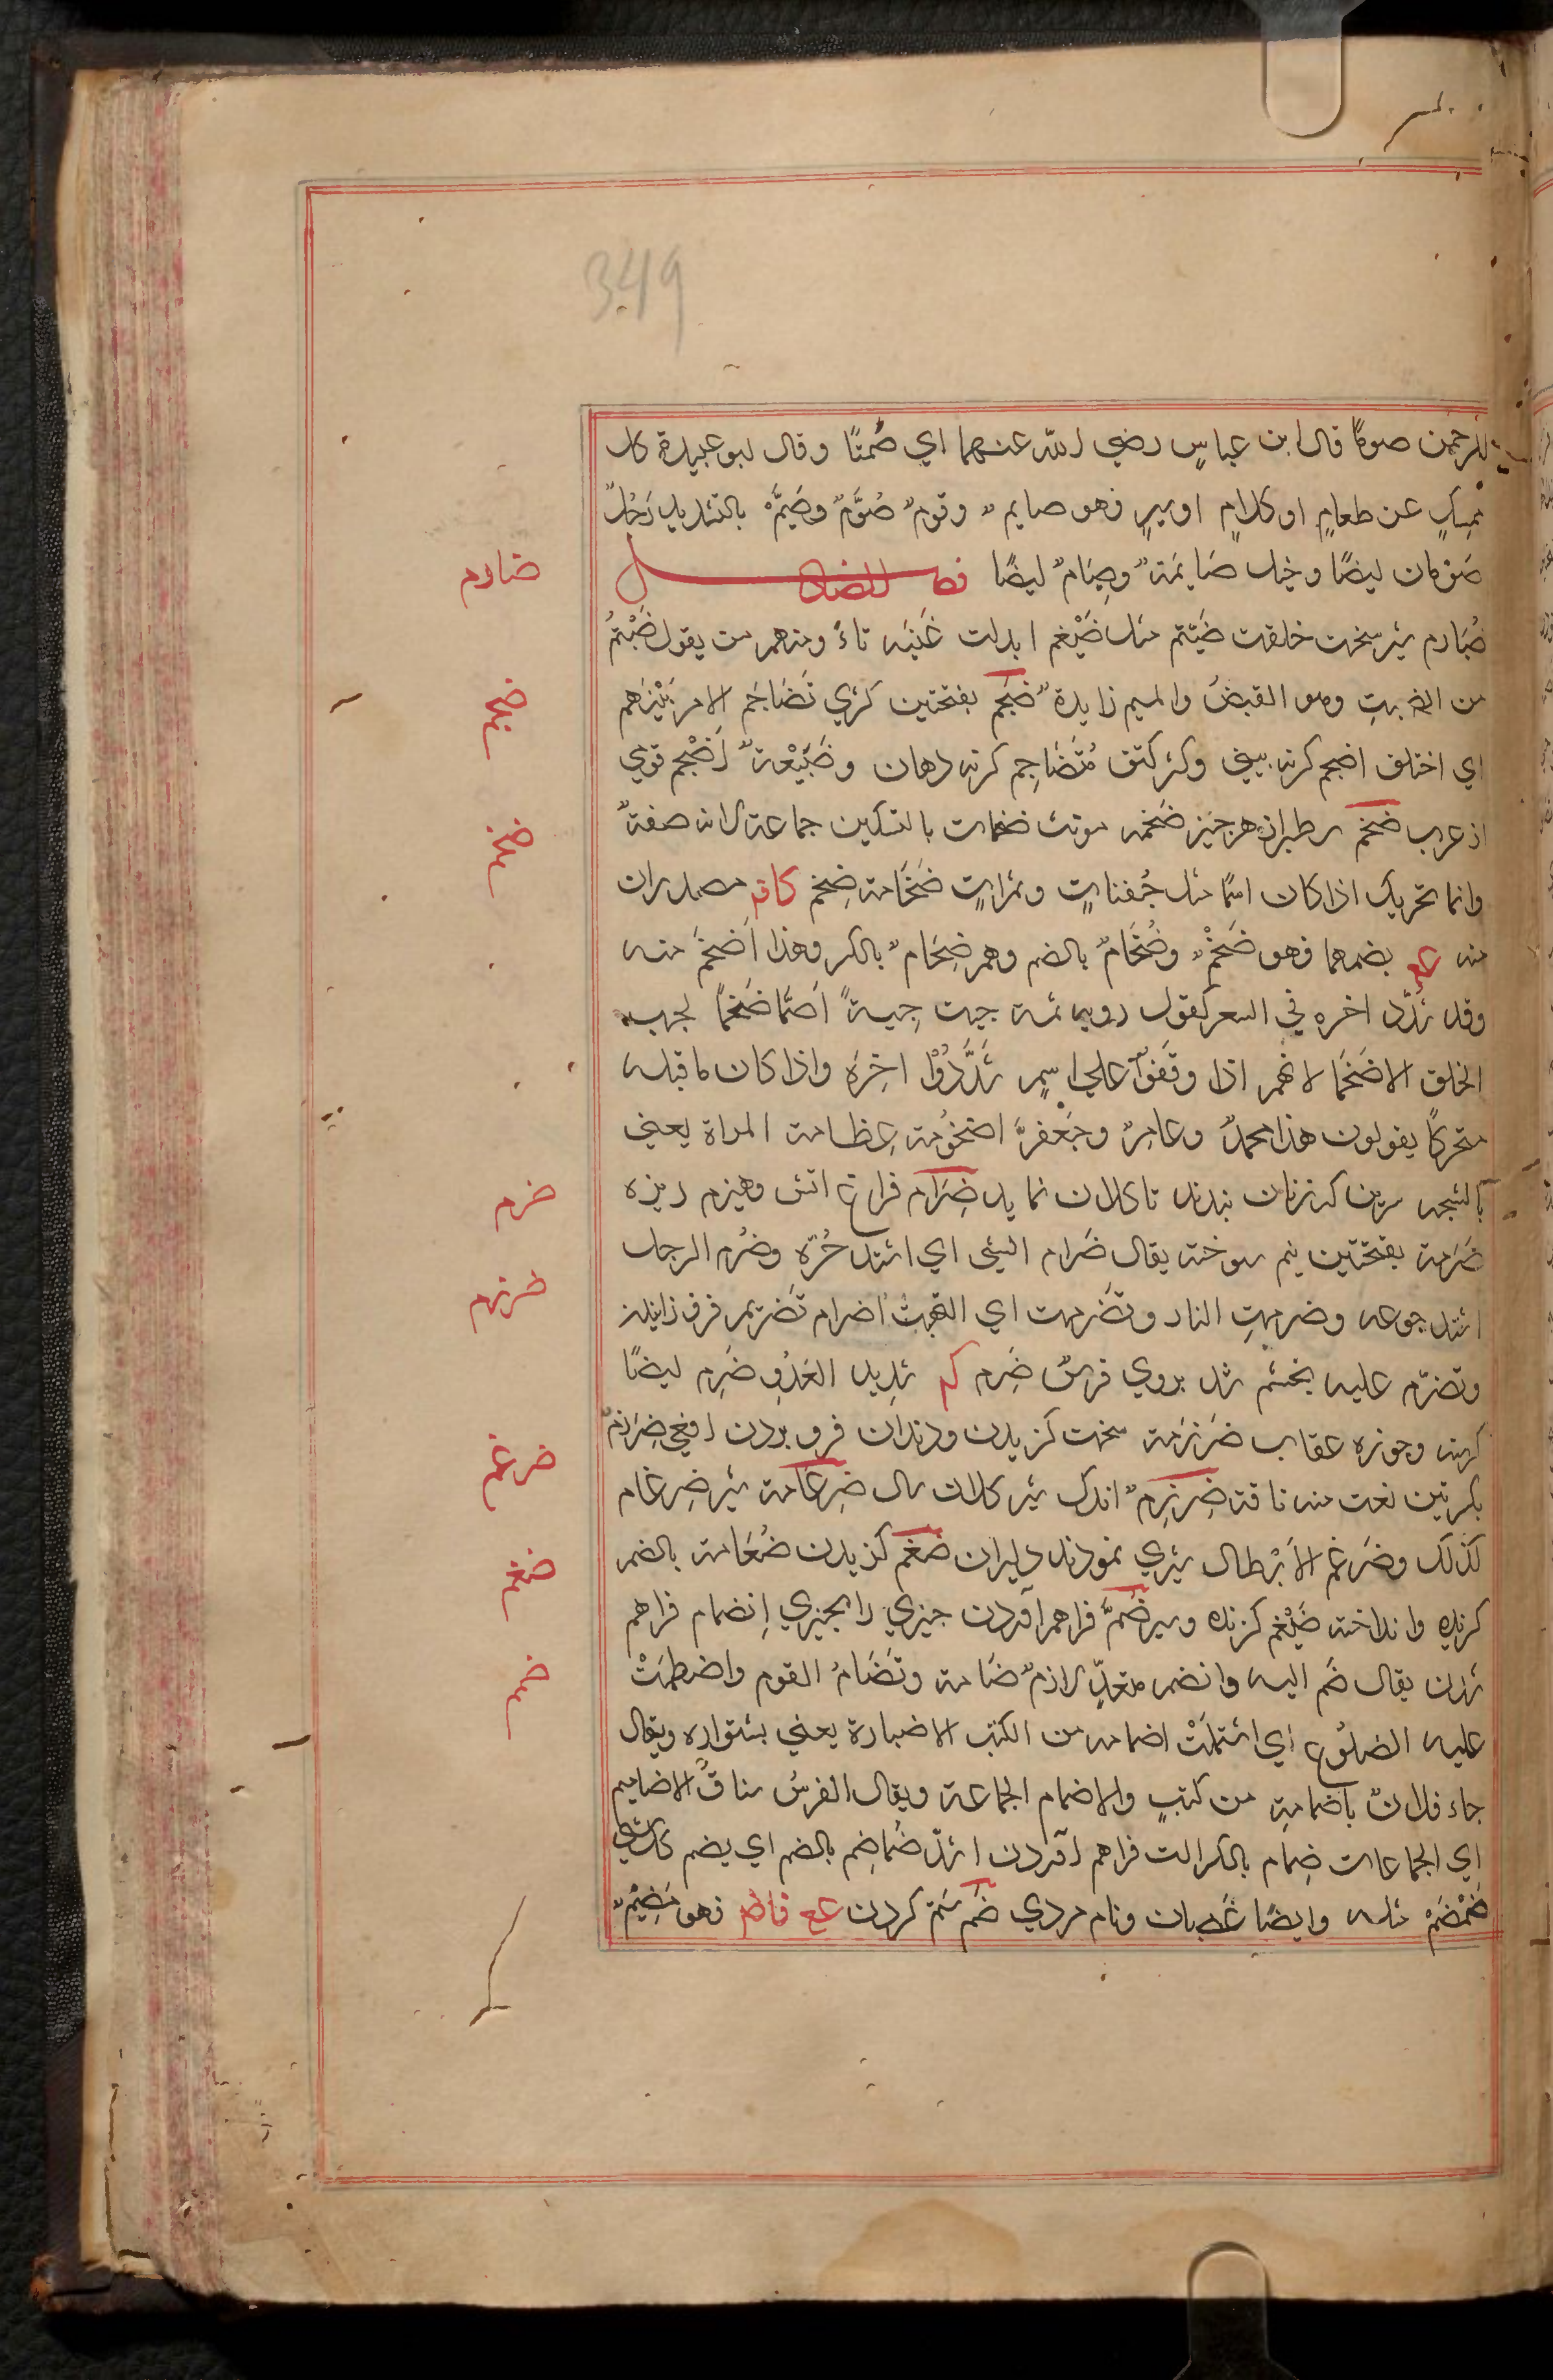 349
للرحمن صومًا قال ابن عباسٍ رضي الله عنهما اي صُمتًا وقال ابو عبيدة كل
ممسكٍ عن طعامٍ او كلامٍ اوسيرٍ فهو صايم وقومٌ صُوَّمٌ وصُيَّمٌ بالتشديد رَجُلٌ
صَومان ايضًا وخيل صَايمَةٌ وصِيَامٌ ايضًا فصل الضاد
ضُبَارم شير سخت خلقت ضَيثم مثل ضَيْغم ابدلت غَينَه ثاءً ومنهم من يقول ضَبْثمُ
من الضبث وهو القبضُ والميم زايدةٌ ضَجَم بفتحتين كژي تَضَاجَم الامر بَيْنَهم
اي اختلف اضجم كژبيني وكژ كتف مُتَضَاجِم كژ دهان وضُبَيْعةُ اَضْجم قومي
از عرب ضخم سطبر از هر چيز ضخمه مونث ضخمات بالتسكين جماعة لانه صفةٌ
وانما تحريك اذا كان اسمًا مثل جُفناتٍ وتمراتٍ ضَخَامة ضِخم كاف مصدران
منه عع بضمهما فهو ضَخْمٌ وضُخَامٌ بالضم وهم ضِخَامٌ بالكسر وهذا اَضخمَ منه
وقد شدّد اخره في الشعر كقول روبه ثمة جيت حِيةً اَصَمّا ضَخمًا يحب
الخلق الاضخمّا لانهم اذا وقَفوٌا علي اسمٍ شَدَّدُوْا اخِرَه واذا كان ما قبله
متحركًا يقولون هذا محمدٌ وعامرٌ وجَعْفرّ اضخُومة عِظامة المراة يعني
بالشجه سرين كه زنان بندند تا كلان نمايد ضِرَام فراغ اتش وهيزم ريزه
ضَرَمة بفتحتين نيم سوخته يقال ضَرام الشئ اي اشتد حُرّه وضَرُم الرجل
اشتد جوعه وضرمتِ النار وتضرمت اي التهبتُ اضرام تضريم فرف زانيدن
وتضرّم عليه بخشم شد بروي فرسٌ ضَرِم كم شديد العَدْوِ ضَرِم ايضًا
گرسنه وجوزه عقاب ضَرْزَمة سخت گزيدن ودندان فرو بردن افعي ضِرزِمٌ
بكسرتين نعت منه ناقة ضِرزِمٌ اندك شير كلان سال ضِرغامة شير ضِرغام
كذلك وضَرغم الاَبْطال شيري نمودند دليران ضغم گزيدن ضُغَامة بالضم
گزيده وانداخته ضَيْغم گزنده وشير ضَمٌّ فراهم آوردن چيزي را بچيزي اِنضمام فراهم
شدن يقال ضَم اليه وانضم متعدٍّ لازمٌ ضَامة وتَضَامَ القوم واضطمتْ
عليه الضلُوع اي اشتملَتْ اضمامه من الكتب الاضبارة يعني بشتواره ويقال
جاء فلانٌ باضمامةٍ من كتبٍ والاضمام الجماعة ويقال الفرسُ سَبّاقُ الاضاميم
اي الجماعات ضِمام بالكسر الت فراهم آوردن اشدّ ضُماضِم بالضم اي يضم كل شي
ضَمْضَمْ مثله وايضًا غَضبان ونام مردي ضَم ستم كردن عع فاطم فهو مَضِيْمٌ
ضبارم
ضجم
ضخم
ضرم
ضرزم
ضرغم
ضغم
ضم